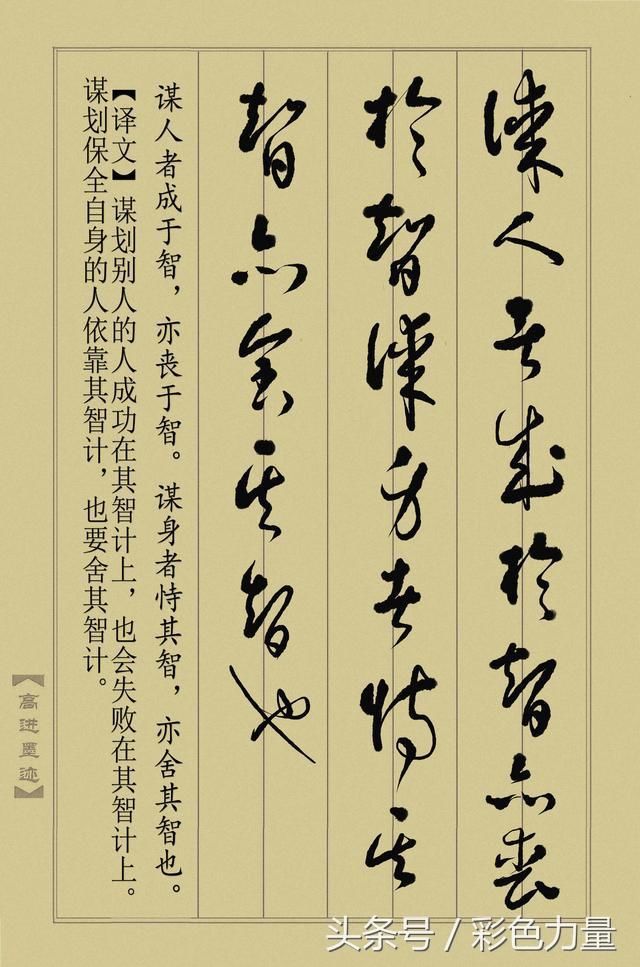 谋人者成於智亦丧
於智谋身者恃其
智亦舍其智也
谋人者成于智，亦丧于智。谋身者恃其智，亦舍其智也。
【译文】谋划别人的人成功在其智计上，也会失败在其智计上。
谋划保全自身的人依靠其智计，也要舍其智计。
【高进墨迹】
头条号 / 彩色力量